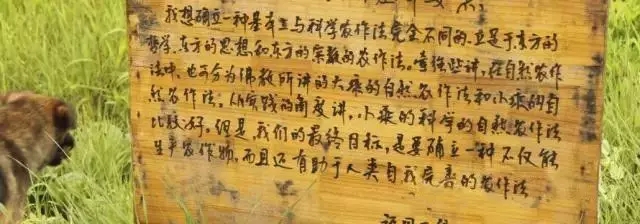 我想确立一种基本上与科学农作法完全不同的,立足于东方的
哲学、东方的思想和东方的宗教的农作法。笼统些讲,在自然农作
法中,也可分为佛教所讲的大乘的自然农作法和小乘的自
然农作法。从实践的角度讲,小乘的科学的自然农作法
比较好。但是,我们的最终目标,是要确立一种不仅能
生产农作物,而且还有助于人类自我完善的农作法